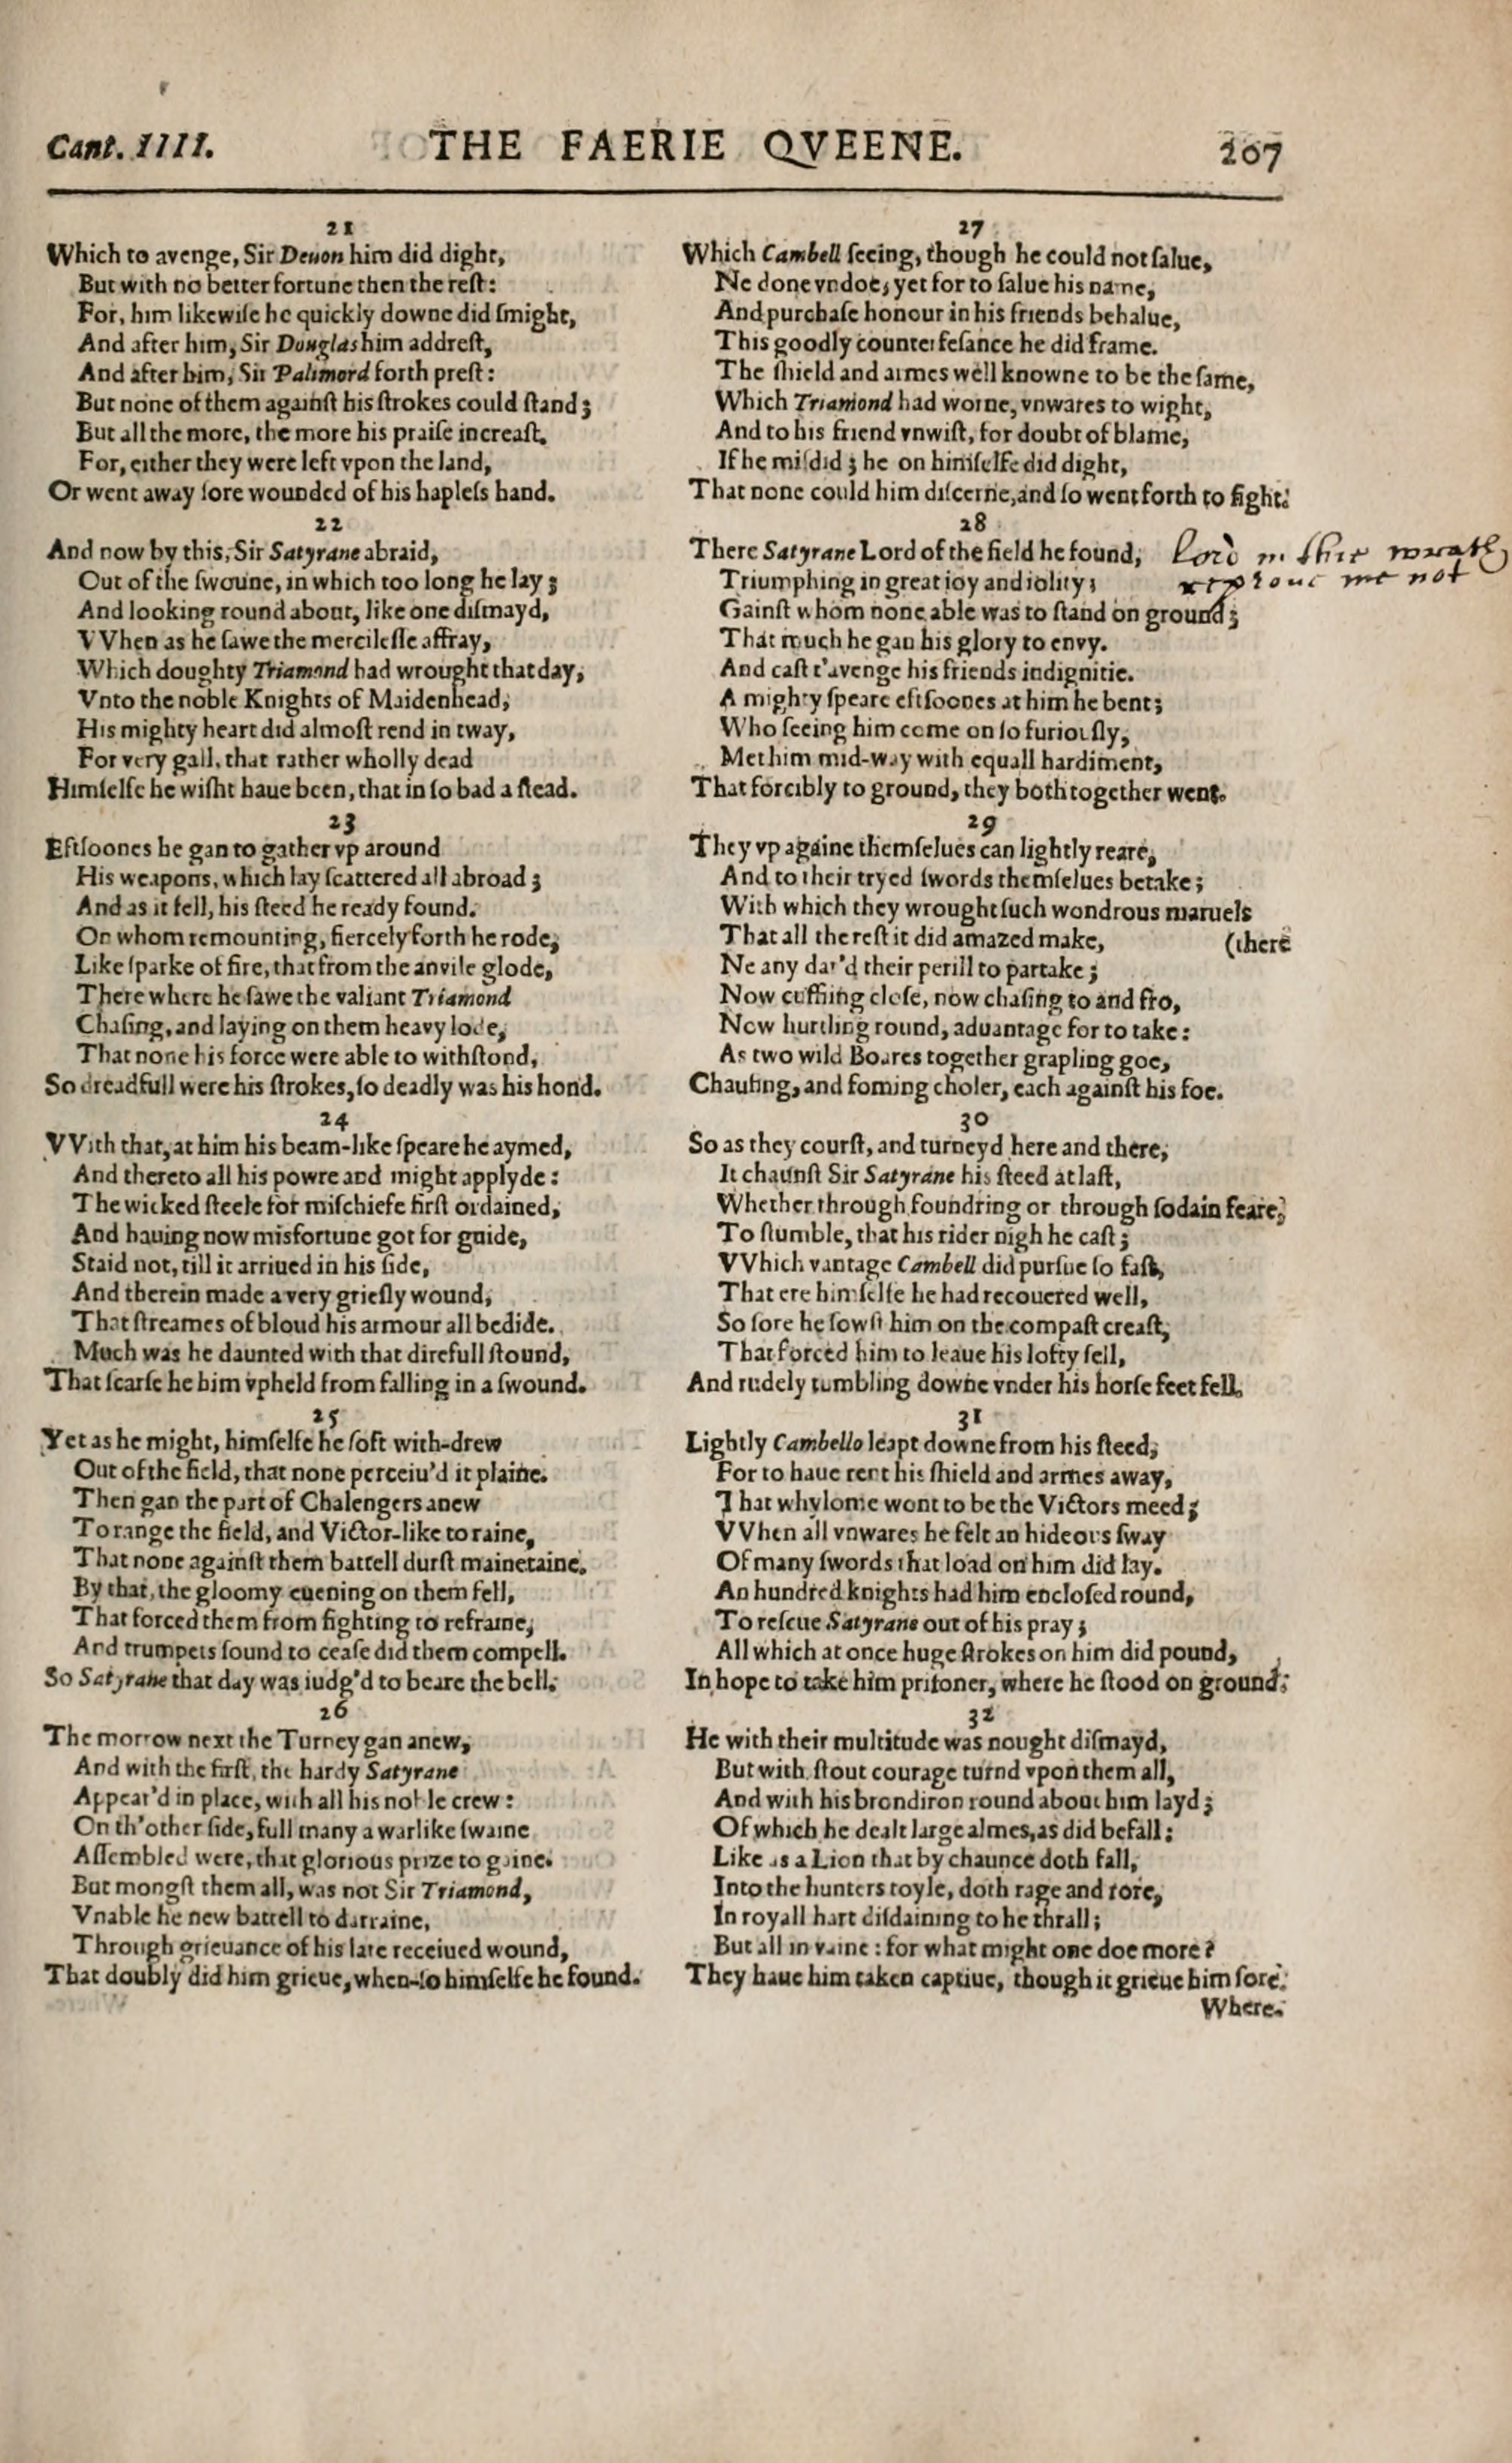 Cant. IIII. THE FAERIE QVEENE. 207
21
Which to avenge, Sir Deuon him did dight,
But with no better fortune then the reſt:
For, him likewiſe he quickly downe did ſmight,
And after him, Sir Douglas him addreſt,
And after him, Sir Palimord forth preſt:
But none of them againſt his ſtrokes could ſtand;
But all the more, the more his praiſe increaſt.
For, either they were left vpon the land,
Or went away ſore wounded of his hapleſs hand.
22
And now by this, Sir Satyrane abraid,
Out of the ſwoune, in which too long he lay;
And looking round about, like one diſmayd,
VVhen as he ſawe the mercileſſe affray,
Which doughty Triamond had wrought that day,
Vnto the noble Knights of Maidenhead,
His mighty heart did almoſt rend in tway,
For very gall, that rather wholly dead
Himſelfe he wiſht haue been, that in ſo bad a ſtead.
23
Eftſoones he gan to gather vp around
His weapons, which lay ſcattered all abroad;
And as it fell, his ſteed he ready found.
On whom remounting, fiercely forth he rode,
Like ſparke of fire, that from the anvile glode,
There where he ſawe the valiant Triamond
Chaſing, and laying on them heavy lode,
That none his force were able to withſtond,
So dreadfull were his ſtrokes, ſo deadly was his hond.
24
VVith that, at him his beam-like ſpeare he aymed,
And thereto all his powre and might applyde:
The wicked ſteele for miſchiefe firſt ordained,
And hauing now misfortune got for guide,
Staid not, till it arriued in his ſide,
And therein made a very grieſly wound,
That ſtreames of bloud his armour all bedide.
Much was he daunted with that direfull ſtound,
That ſcarſe he him vpheld from falling in a ſwound.
25
Yet as he might, himſelfe he ſoft with-drew
Out of the field, that none perceiu'd it plaine.
Then gan the part of Chalengers anew
To range the field, and Victor-like to raine,
That none againſt them battell durſt mainetaine.
By that, the gloomy euening on them fell,
That forced them from fighting to refraine,
And trumpets ſound to ceaſe did them compell.
So Satyrane that day was iudg'd to beare the bell.
26
The morrow next the Turney gan anew,
And with the firſt, the hardy Satyrane
Appear'd in place, with all his noble crew:
On th'other ſide, full many a warlike ſwaine
Aſſembled were, that glorious prize to gaine.
But mongſt them all, was not Sir Triamond,
Vnable he new battell to darraine,
Through grieuance of his late receiued wound,
That doubly did him grieue, when-ſo himſelfe he found.
27
Which Cambell ſeeing, though he could not ſalue,
Ne done vndoe, yet for to ſalue his name,
And purchaſe honour in his friends behalue,
This goodly counterfeſance he did frame.
The ſhield and armes well knowne to be the ſame,
Which Triamond had worne, vnwares to wight,
And to his friend vnwiſt, for doubt of blame,
If he miſdid; he on himſelfe did dight,
That none could him diſcerne, and ſo went forth to fight.
28
There Satyrane Lord of the field he found, Lord in thie wrath
Triumphing in great ioy and iolity; reproue me not
Gainſt whom none able was to ſtand on ground;
That much he gan his glory to envy.
And caſt t'avenge his friends indignitie.
A mighty ſpeare eftſoones at him he bent;
Who ſeeing him come on ſo furiouſly,
Met him mid-way with equall hardiment,
That forcibly to ground, they both together went.
29
They vp againe themſelues can lightly reare,
And to their tryed ſwords themſelues betake;
With which they wrought ſuch wondrous maruels
That all the reſt it did amazed make, (there
Ne any dar'd their perill to partake;
Now cuffing cloſe, now chaſing to and fro,
Now hurtling round, aduantage for to take:
As two wild Boares together grapling goe,
Chaufing, and foming choler, each againſt his foe.
30
So as they courſt, and turneyd here and there,
It chaunſt Sir Satyrane his ſteed at laſt,
Whether through foundring or through ſodain feare,
To ſtumble, that his rider nigh he caſt;
VVhich vantage Cambell did purſue ſo faſt,
That ere himſelfe he had recouered well,
So ſore he ſowſt him on the compaſt creaſt,
That forced him to leaue his lofty ſell,
And rudely tumbling downe vnder his horſe feet fell.
31
Lightly Cambello leapt downe from his ſteed,
For to haue rent his ſhield and armes away,
That whylome wont to be the Victors meed;
VVhen all vnwares he felt an hideous ſway
Of many ſwords that load on him did lay.
An hundred knights had him encloſed round,
To reſcue Satyrane out of his pray;
All which at once huge ſtrokes on him did pound,
In hope to take him priſoner, where he ſtood on ground.
32
He with their multitude was nought diſmayd,
But with ſtout courage turnd vpon them all,
And with his brondiron round about him layd;
Of which he dealt large almes, as did befall:
Like as a Lion that by chaunce doth fall,
Into the hunters toyle, doth rage and rore,
In royall hart diſdaining to be thrall;
But all in vaine: for what might one doe more?
They haue him taken captiue, though it grieue him ſore.
Where-